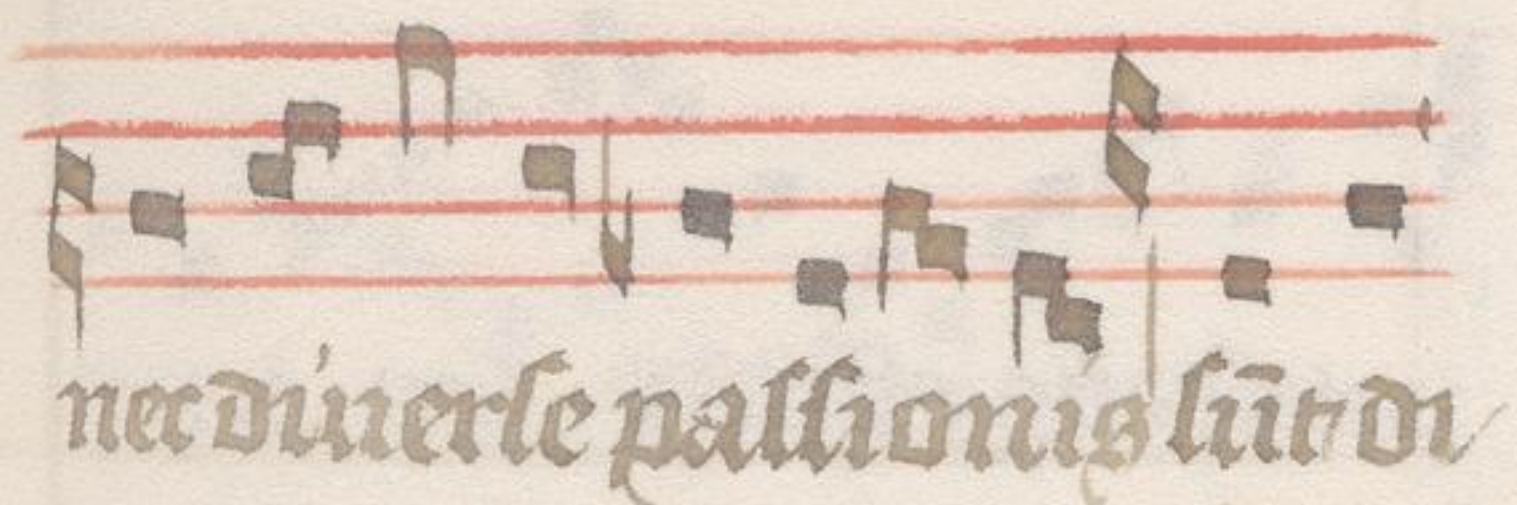 nec diuerse passionis sūt di